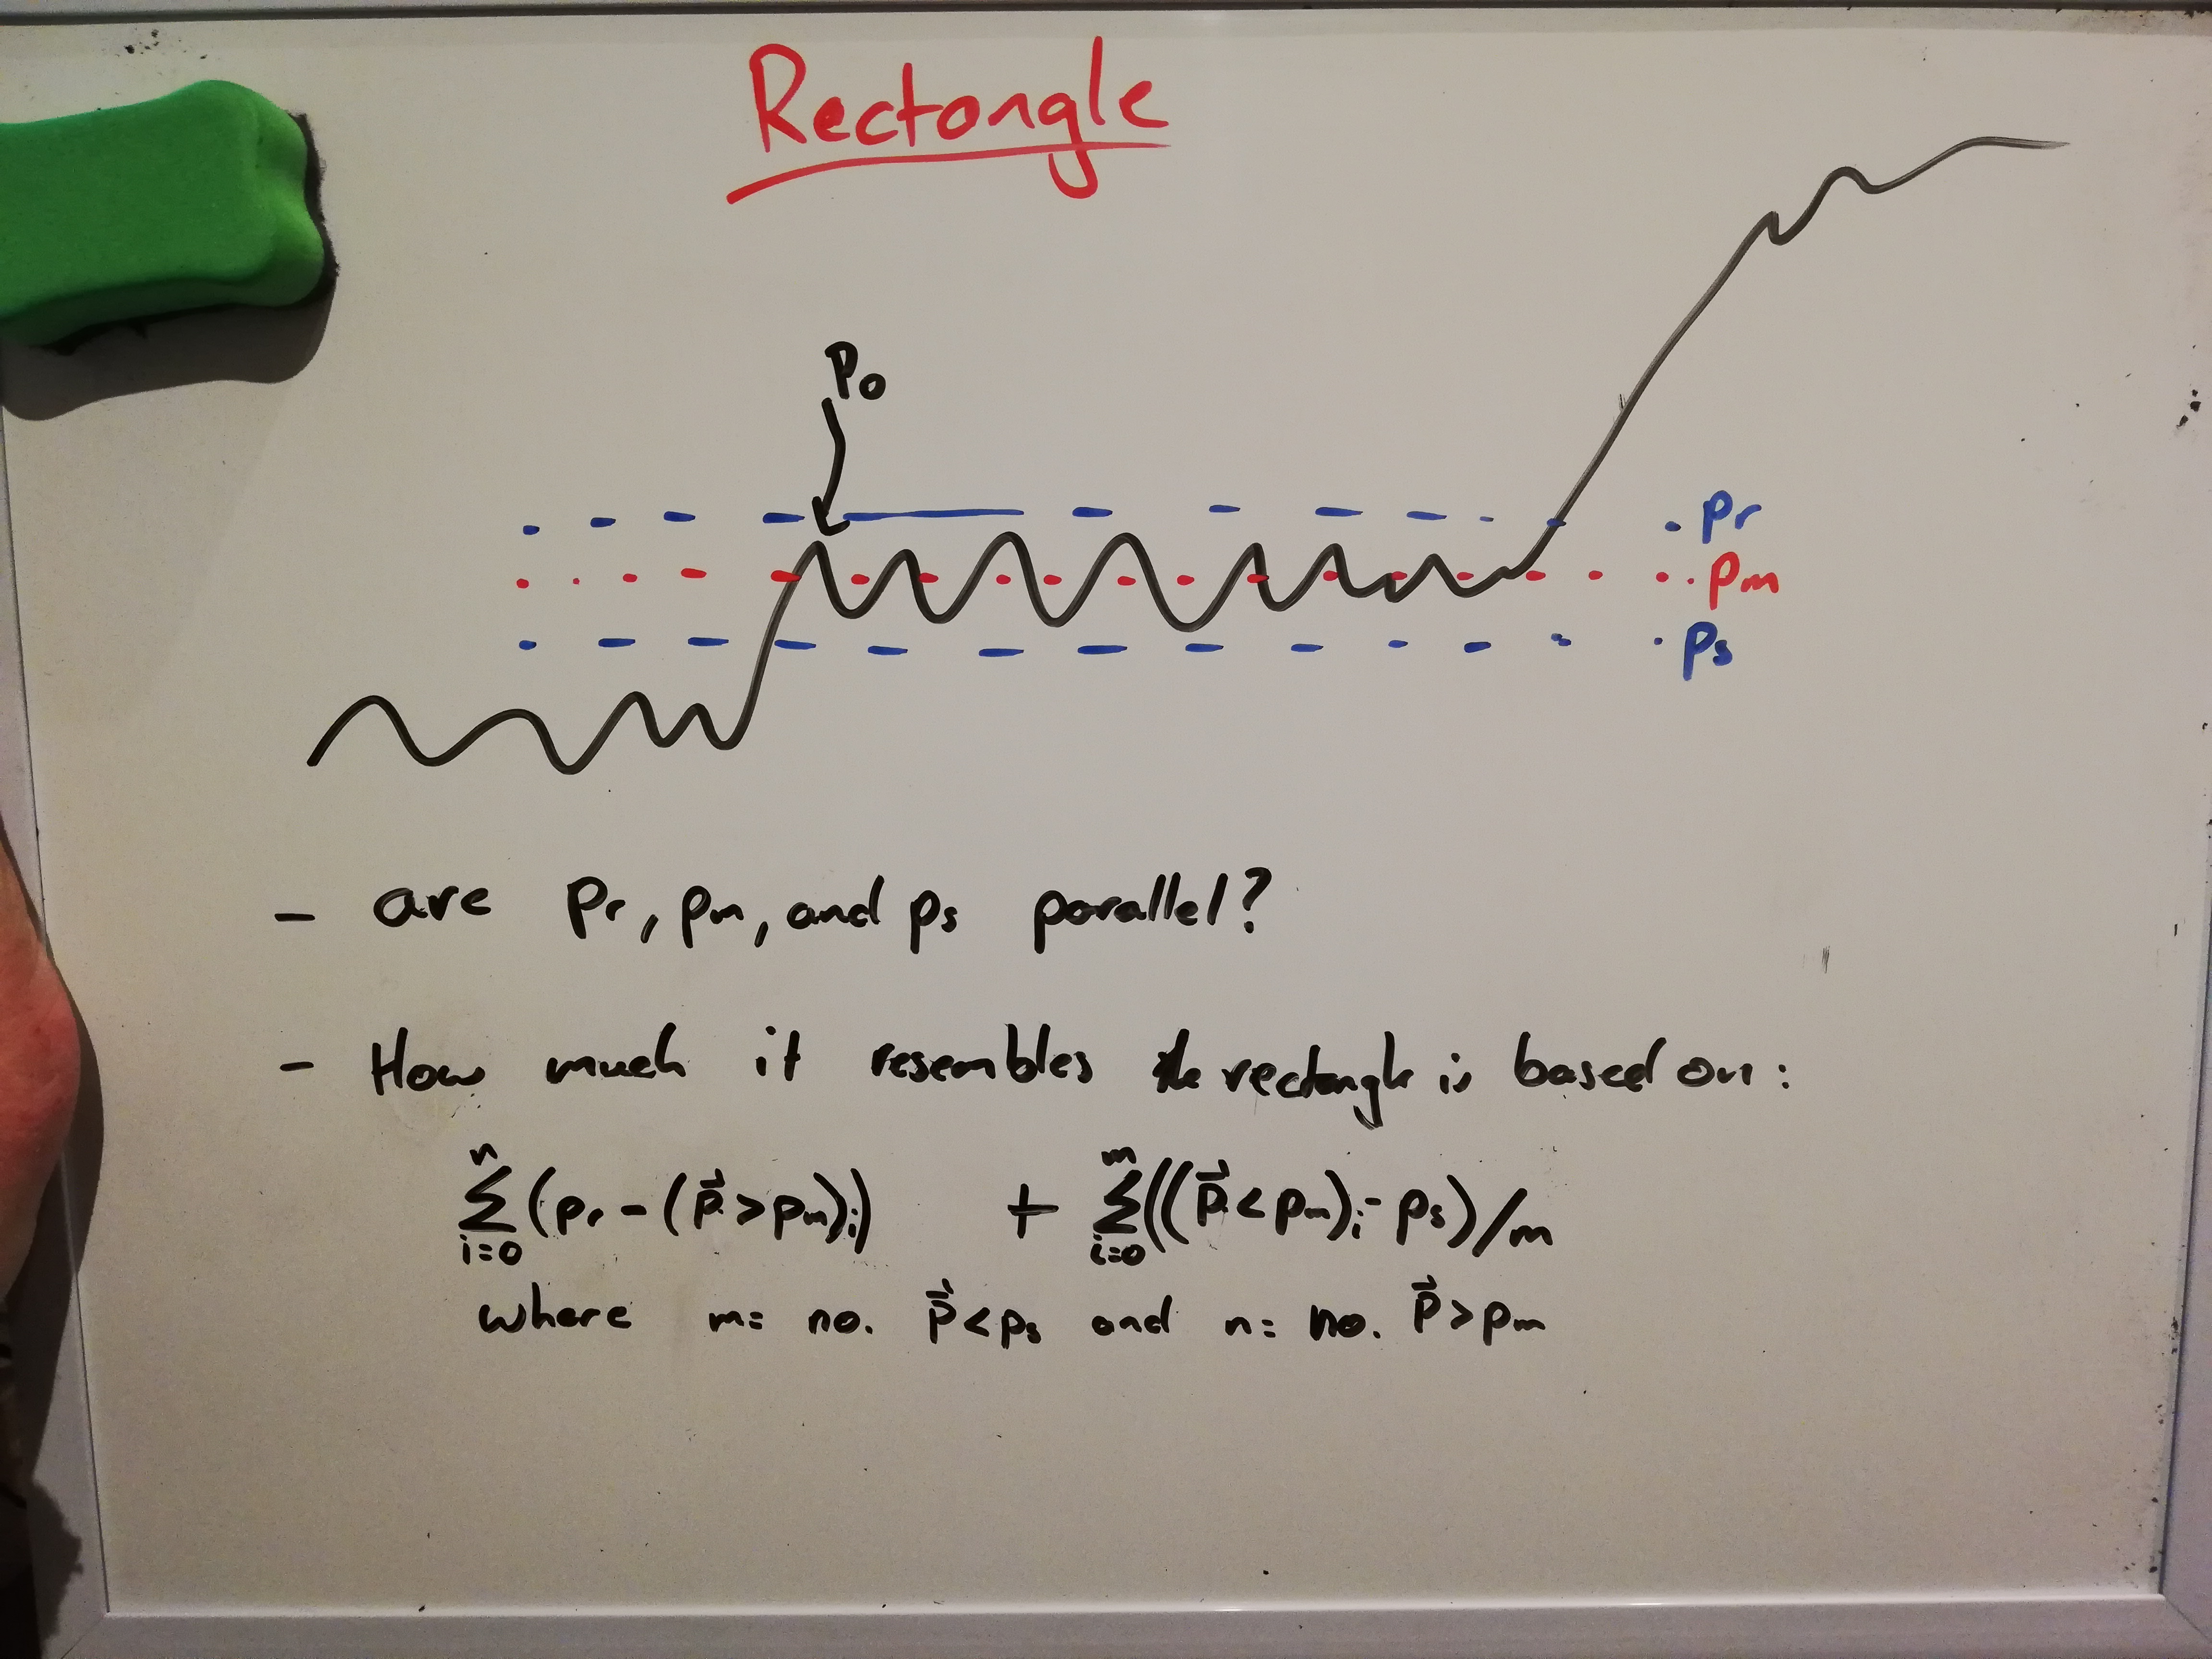 Rectangle
Po
pr
pm
ps
- are Pr, pm, and ps parallel?
- How much it resembles the rectangle is based on:
n ∑ i=0 (pr - (p⃗ > pm)i) + m ∑ i=0 ((p⃗ < pm)i - ps) / m
where m= no. p⃗ < ps and n= no. p⃗ > pm